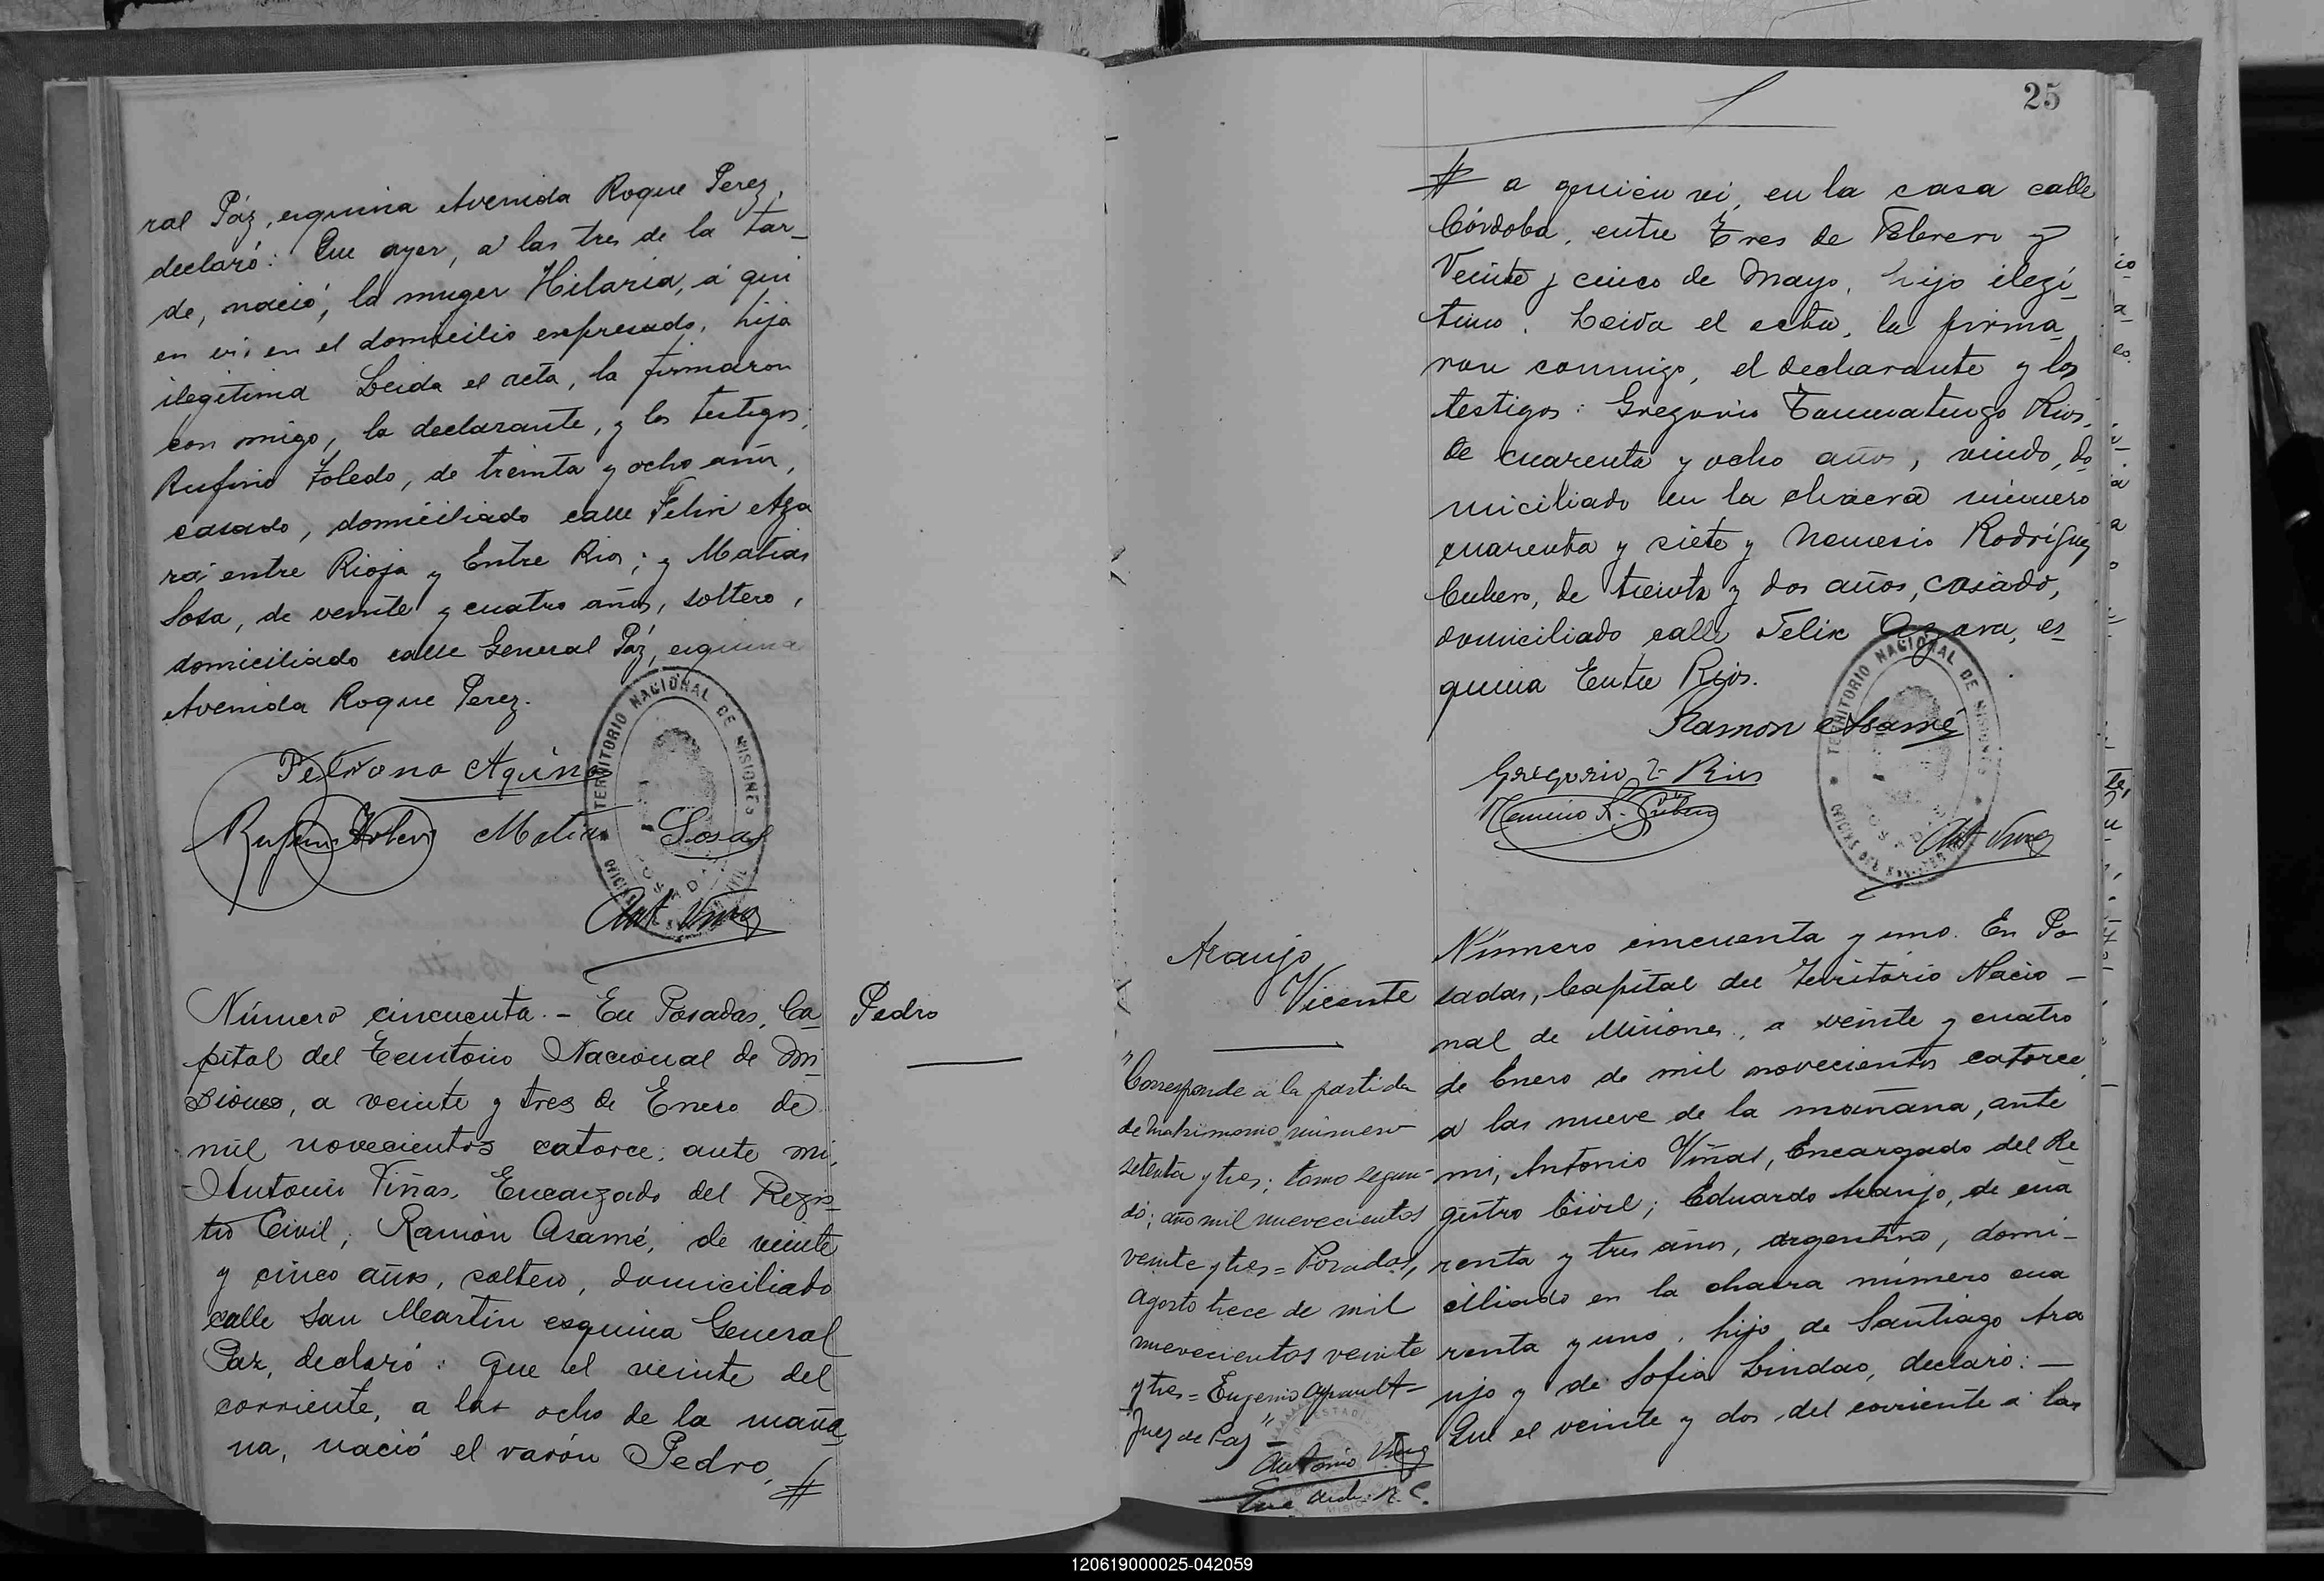 ral Páz, esquina Avenida Roque Perez,
declaró: Que ayer, á las tres de la tar_
de, nació, la muger Hilaria, á qui
en vi, en el domicilio expresado, hija
ilegítima Leida el acta, la firmaron
con migo, la declarante, y los testigos,
Rufino Toledo, de treinta y ocho años,
casado, domiciliado calle Felix Aza
ra entre Rioja y Entre Rios; y Matias
Sosa, de veinte y cuatro años, soltero,
domiciliado calle General Páz, esquina
Avenida Roque Perez.
Petrona Aquino
Rufino Toledo Matias Sosa
TERRITORIO NACIONAL DE MISIONES
Ant Viñas
Número cincuenta. - En Posadas, Ca_
pital del Territorio Nacional de Mi_
siones, a veinte y tres de Enero de
mil novecientos catorce; ante mi,
Antonio Viñas, Encargado del Regis_
tro Civil; Ramón Asamé, de veinte
y cinco años, soltero, domiciliado
calle San Martin esquina General
Paz, declaró: que el veinte del
corriente, a las ocho de la maña_
na, nació el varón Pedro, #
Pedro
25
# a quien vi, en la casa calle
Córdoba, entre Tres de Febrero y
Veinte y cinco de Mayo, hijo ilegí_
timo. Leida el acta, la firma_
ron conmigo, el declarante y los
testigos: Gregorio Rios,
de cuarenta y ocho años, viudo, do_
miciliado en la chacra número
cuarenta y siete y Nemesio Rodríguez
Cubero, de treinta y dos años, casado,
domiciliado calle Felix Azara, es_
quina Entre Rios.
Ramon Asamé
TERRITORIO NACIONAL DE MISIONES
Gregorio T. Rios
Nemesio R. Cubero
Ant Viñas
Araujo
Vicente
"Corresponde a la partida
de matrimonio número
setenta y tres; tomo segun-
do; año mil nuevecientos
veinte y tres = Posadas,
Agosto trece de mil
nuevecientos veinte
y tres = Eugenio
Juez de Paz" -
Antonio Viñas
R. C.
Número cincuenta y uno. En Po
sadas, Capital del Territorio Nacio -
nal de Misiones, a veinte y cuatro
de Enero de mil novecientos catorce,
a las nueve de la mañana, ante
mi, Antonio Viñas, Encargado del Re_
gistro Civil; Eduardo Araujo, de cua
renta y tres años, argentino, domi -
ciliado en la chacra número cua
renta y uno, hijo de Santiago Ara
ujo y de Sofia Lindao, declaró: -
Que el veinte y dos del corriente á las
120619000025-042059